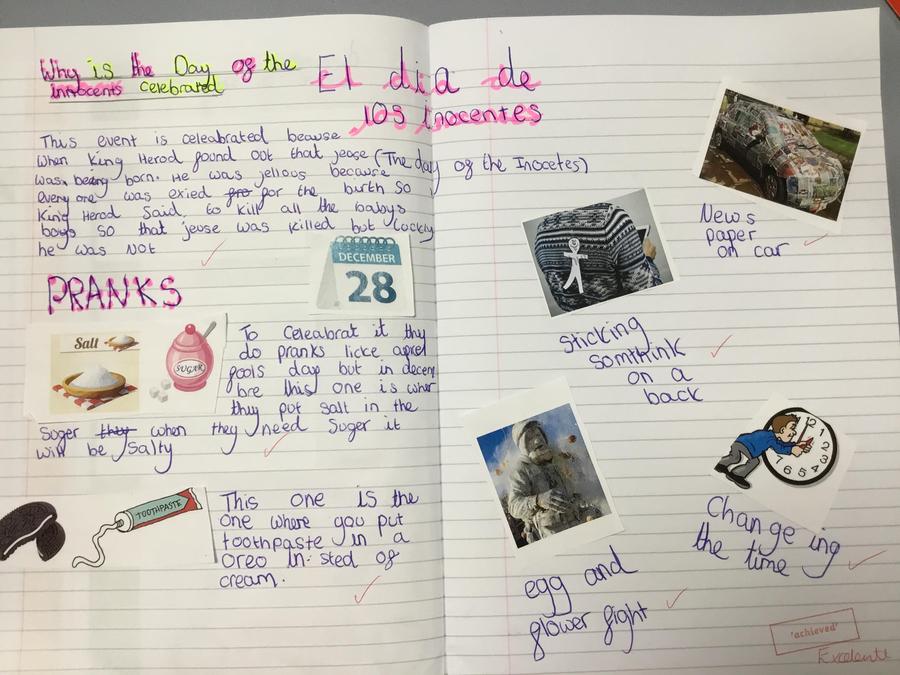 Why is the Day of the
innocents celebrated
El dia de
los inocentes
(The day of the Inocetes)
This event is celeabrated beause
when King Herod found out that jease
was being born. He was jellous because
every one was exied for for the burth so
King Herod Said to kill all the babys
boys so that jeuse was killed but lockly
he was Not
DECEMBER
28
PRANKS
Salt
SUGAR
To Celeabrat it they
do pranks licke aprel
fools day but in decem
bre this one is wher
they put salt in the
Suger they when they need Suger it
will be salty
TOOTHPASTE
This one is the
one where you put
toothpaste in a
oreo in-sted of
cream.
News
paper
on car
sticking
somthink
on a
back
12
1
2
3
4
5
6
7
Change ing
the time
egg and
flower fight
'achieved'
Excelente